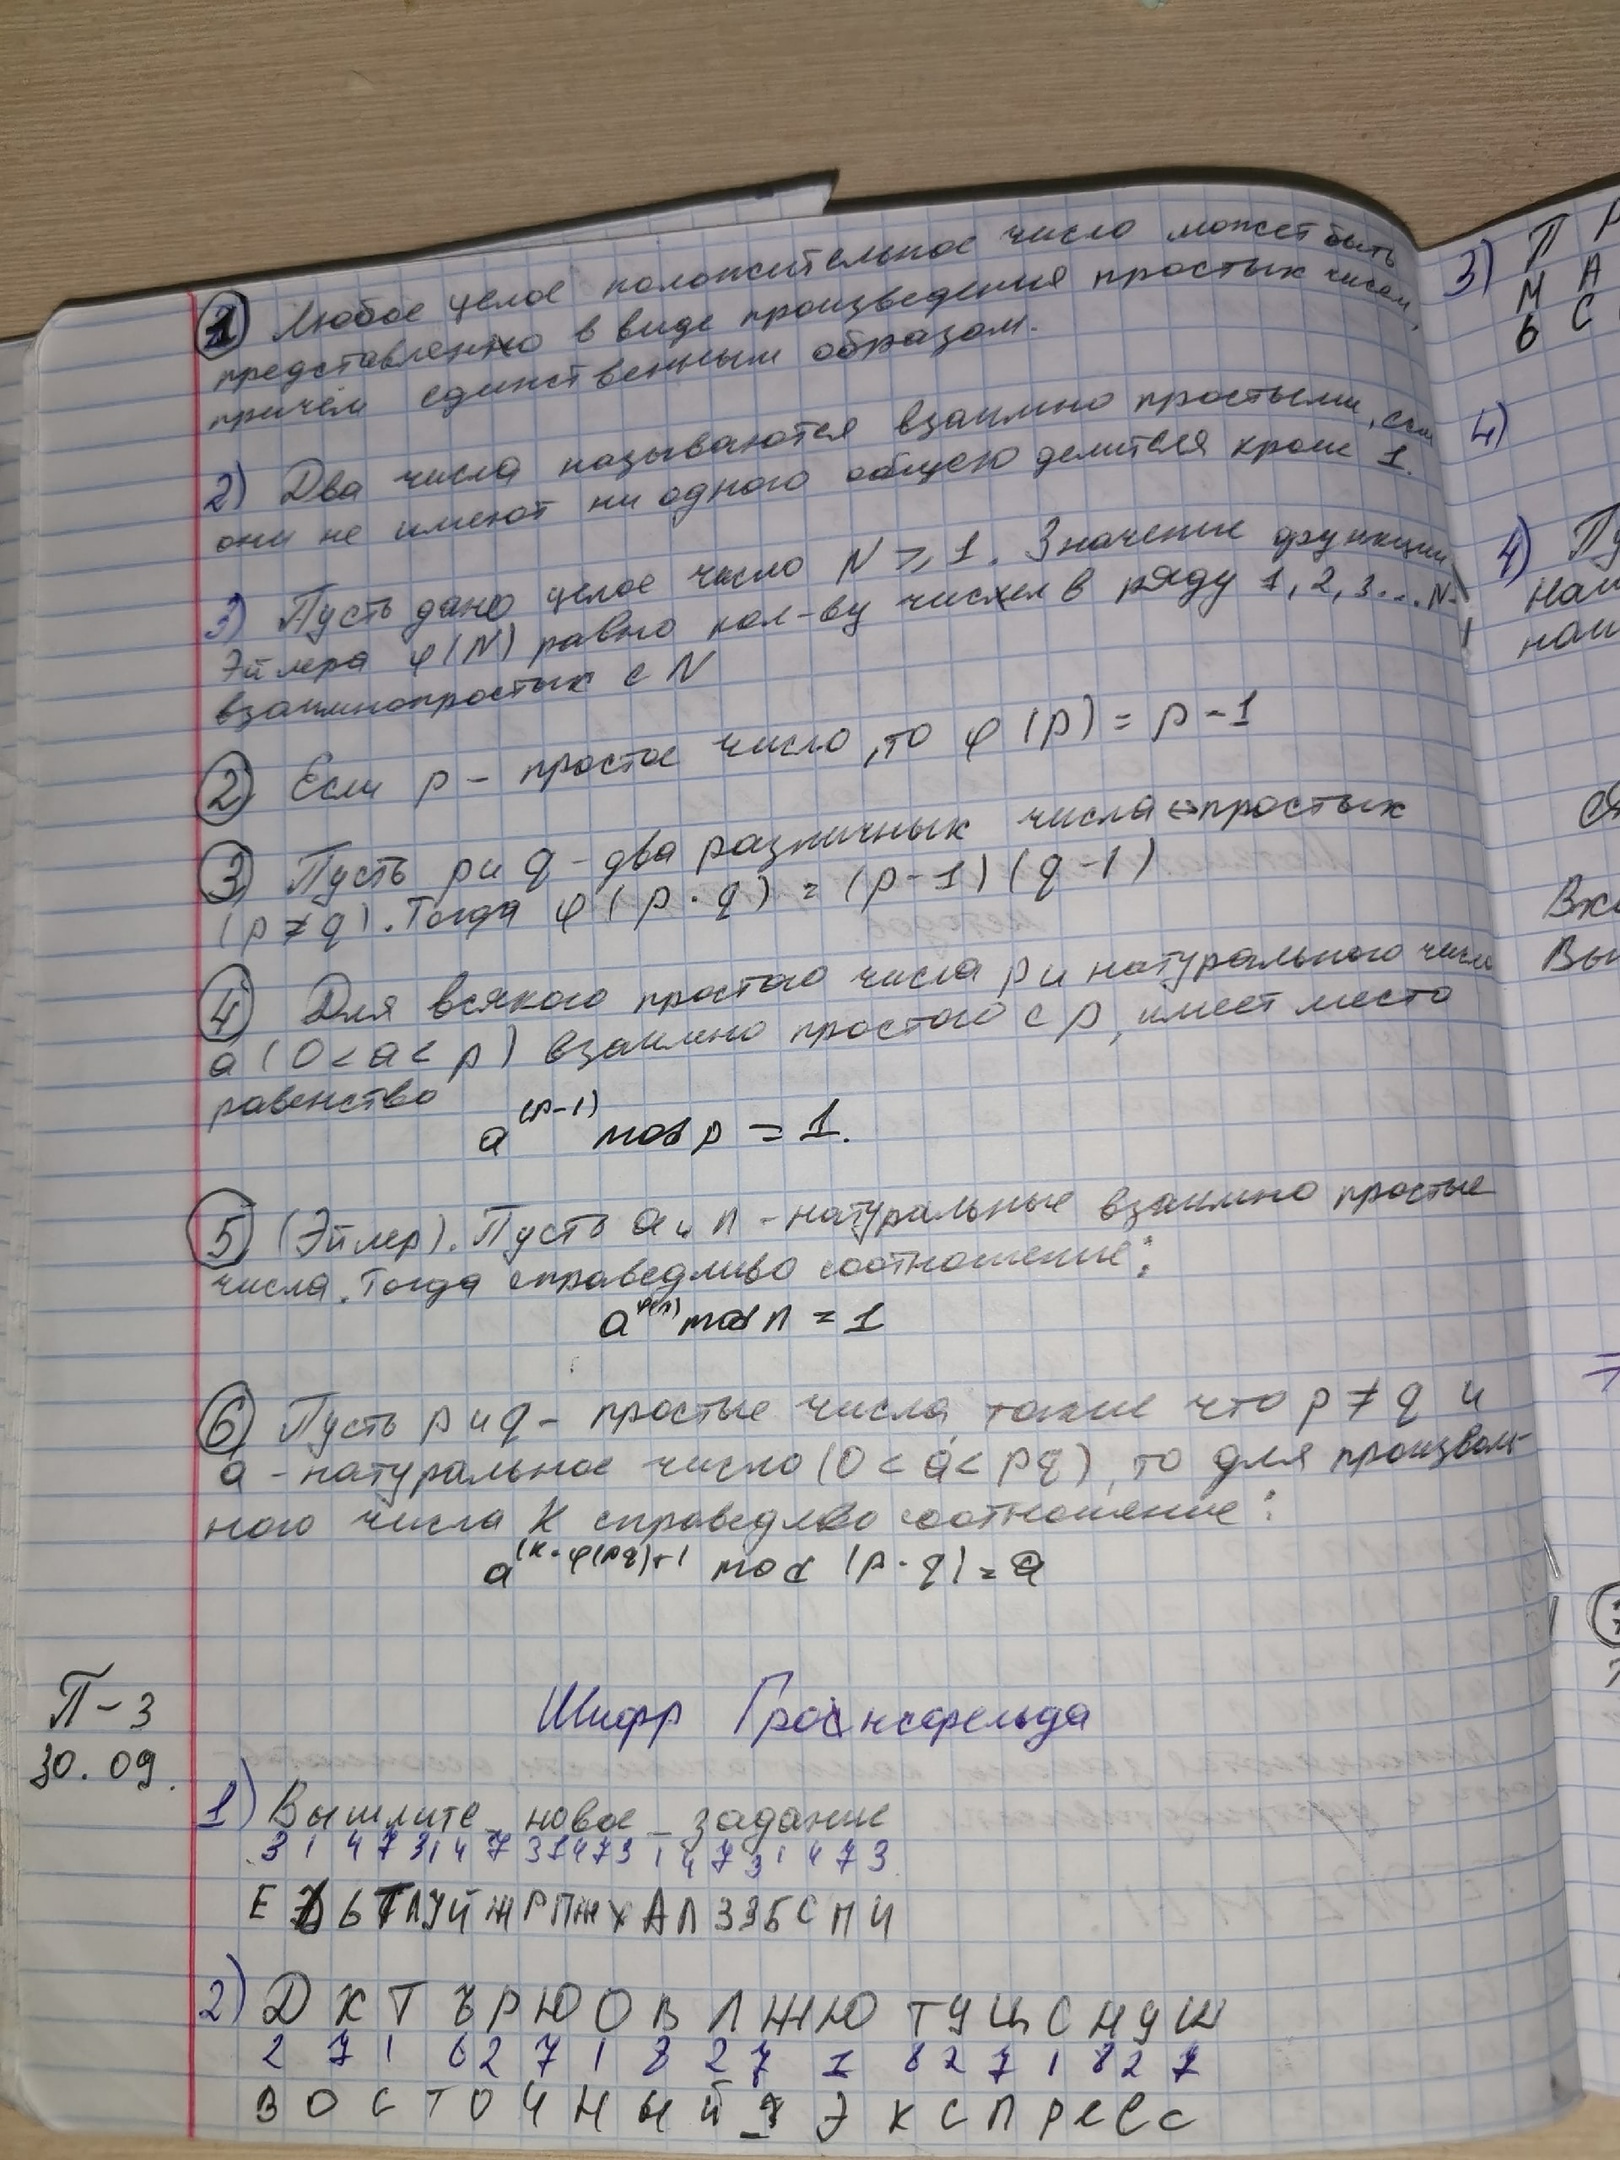 1 Любое целое положительное число может быть
представленно в виде произведения простых чисел,
причём единственным образом.
2) Два числа называются взаимно простыми, если
они не имеют ни одного общего делителя кроме 1.
3) Пусть дано целое число N ≥ 1. Значение функции
Эйлера φ(N) равно кол-ву чисел в ряду 1, 2, 3... N-1
взаимнопростых с N
2 Если p - простое число, то φ(p) = p - 1
3 Пусть p и q - два различных числа простых
(p ≠ q). Тогда φ(p · q) = (p - 1)(q - 1)
4 Для всякого простого числа p и натурального числа
a (0 < a < p) взаимно простого с p, имеет место
равенство
a^(p-1) mod p = 1.
5 (Эйлер). Пусть a и n - натуральные взаимно простые
числа. Тогда справедливо соотношение:
a^φ(n) mod n = 1
6 Пусть p и q - простые числа, такие что p ≠ q и
a - натуральное число (0 < a < pq), то для произволь-
ного числа K справедливо соотношение:
a^(k·φ(pq)+1 mod (p · q) = a
П-3
30.09.
Шифр Гронсфельда
1) Вышлите_новое_задание
3 1 4 7 3 1 4 7 3 1 4 7 3 1 4 7 3 1 4 7 3
2) Д Х Т Ъ Р Ю О В Л Ж Ю Т У Ц С Н У Ш
2 7 1 8 2 7 1 8 2 7 1 8 2 7 1 8 2 7
В О С Т О Ч Н Ы Й _ Э К С П Р Е С С
3) П Р
М А
Ь С
4)
4) Пу
наи
наи
Вхо
Вы